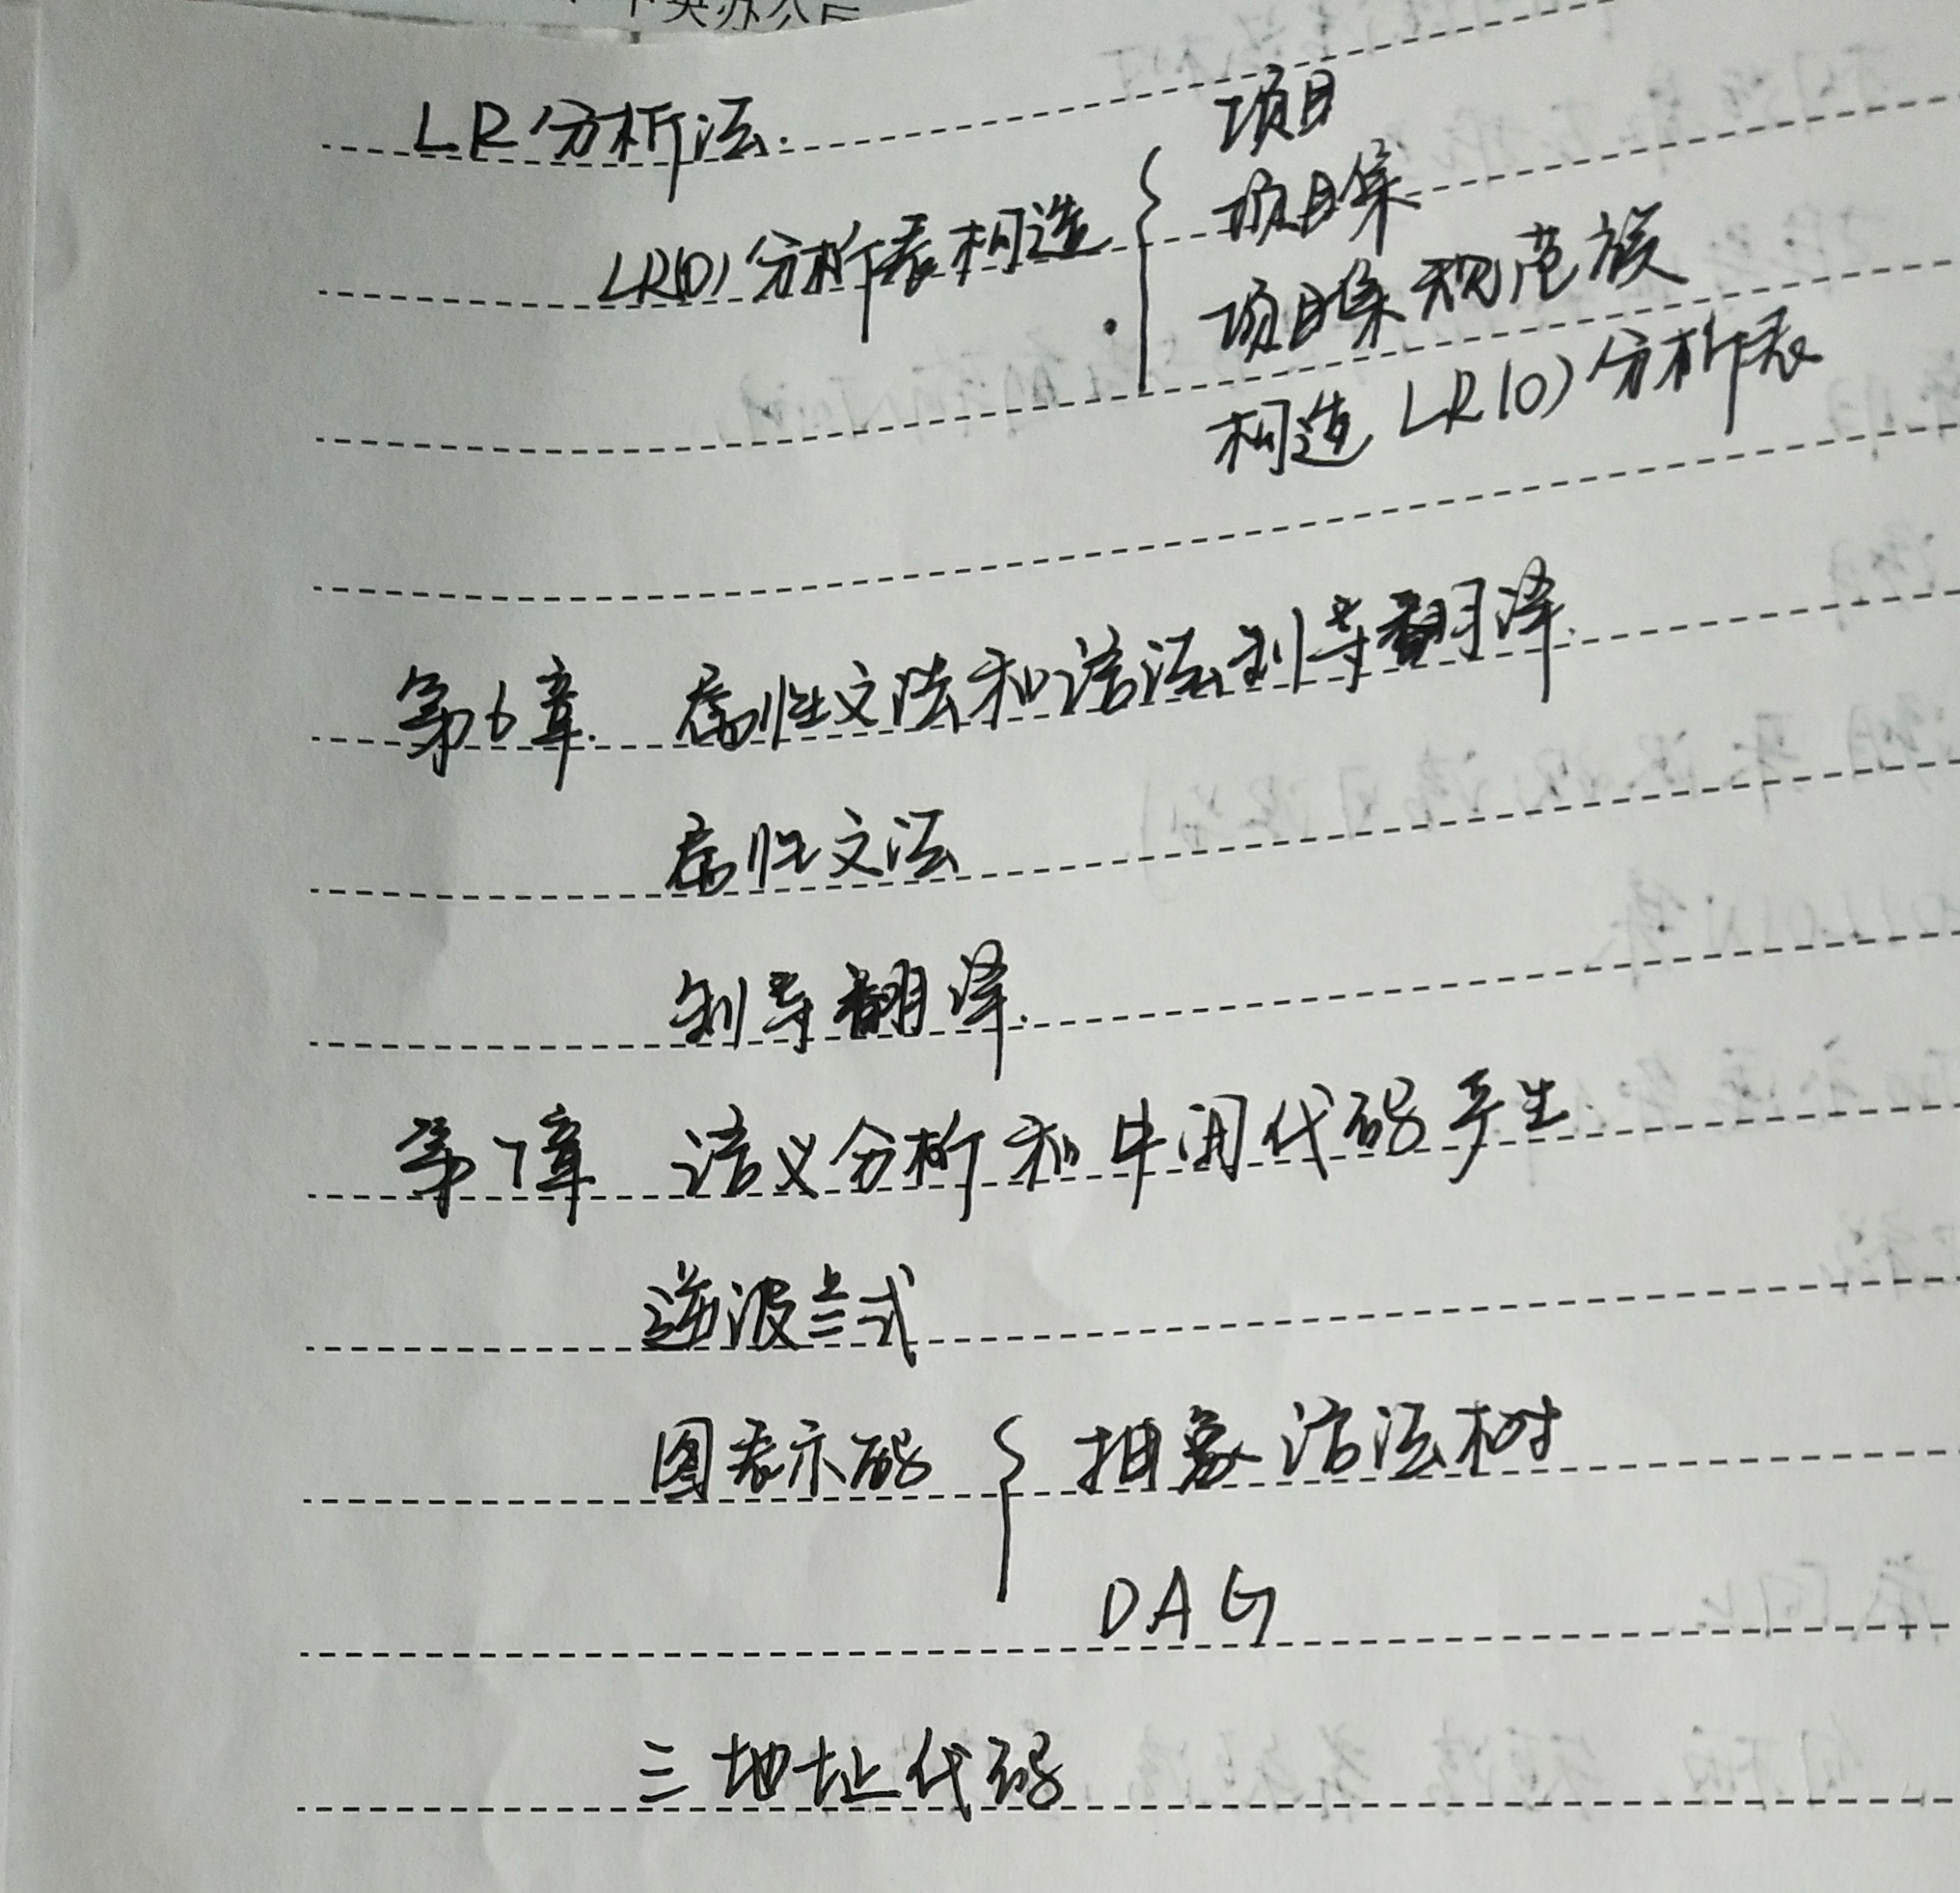 LR分析法.
LR(0)分析表构造
项目
项目集
项目集规范族
构造LR(0)分析表
第6章. 属性文法和语法制导翻译.
属性文法
制导翻译.
第7章 语义分析和中间代码产生.
逆波兰式
图表示码
抽象语法树
DAG
三地址代码